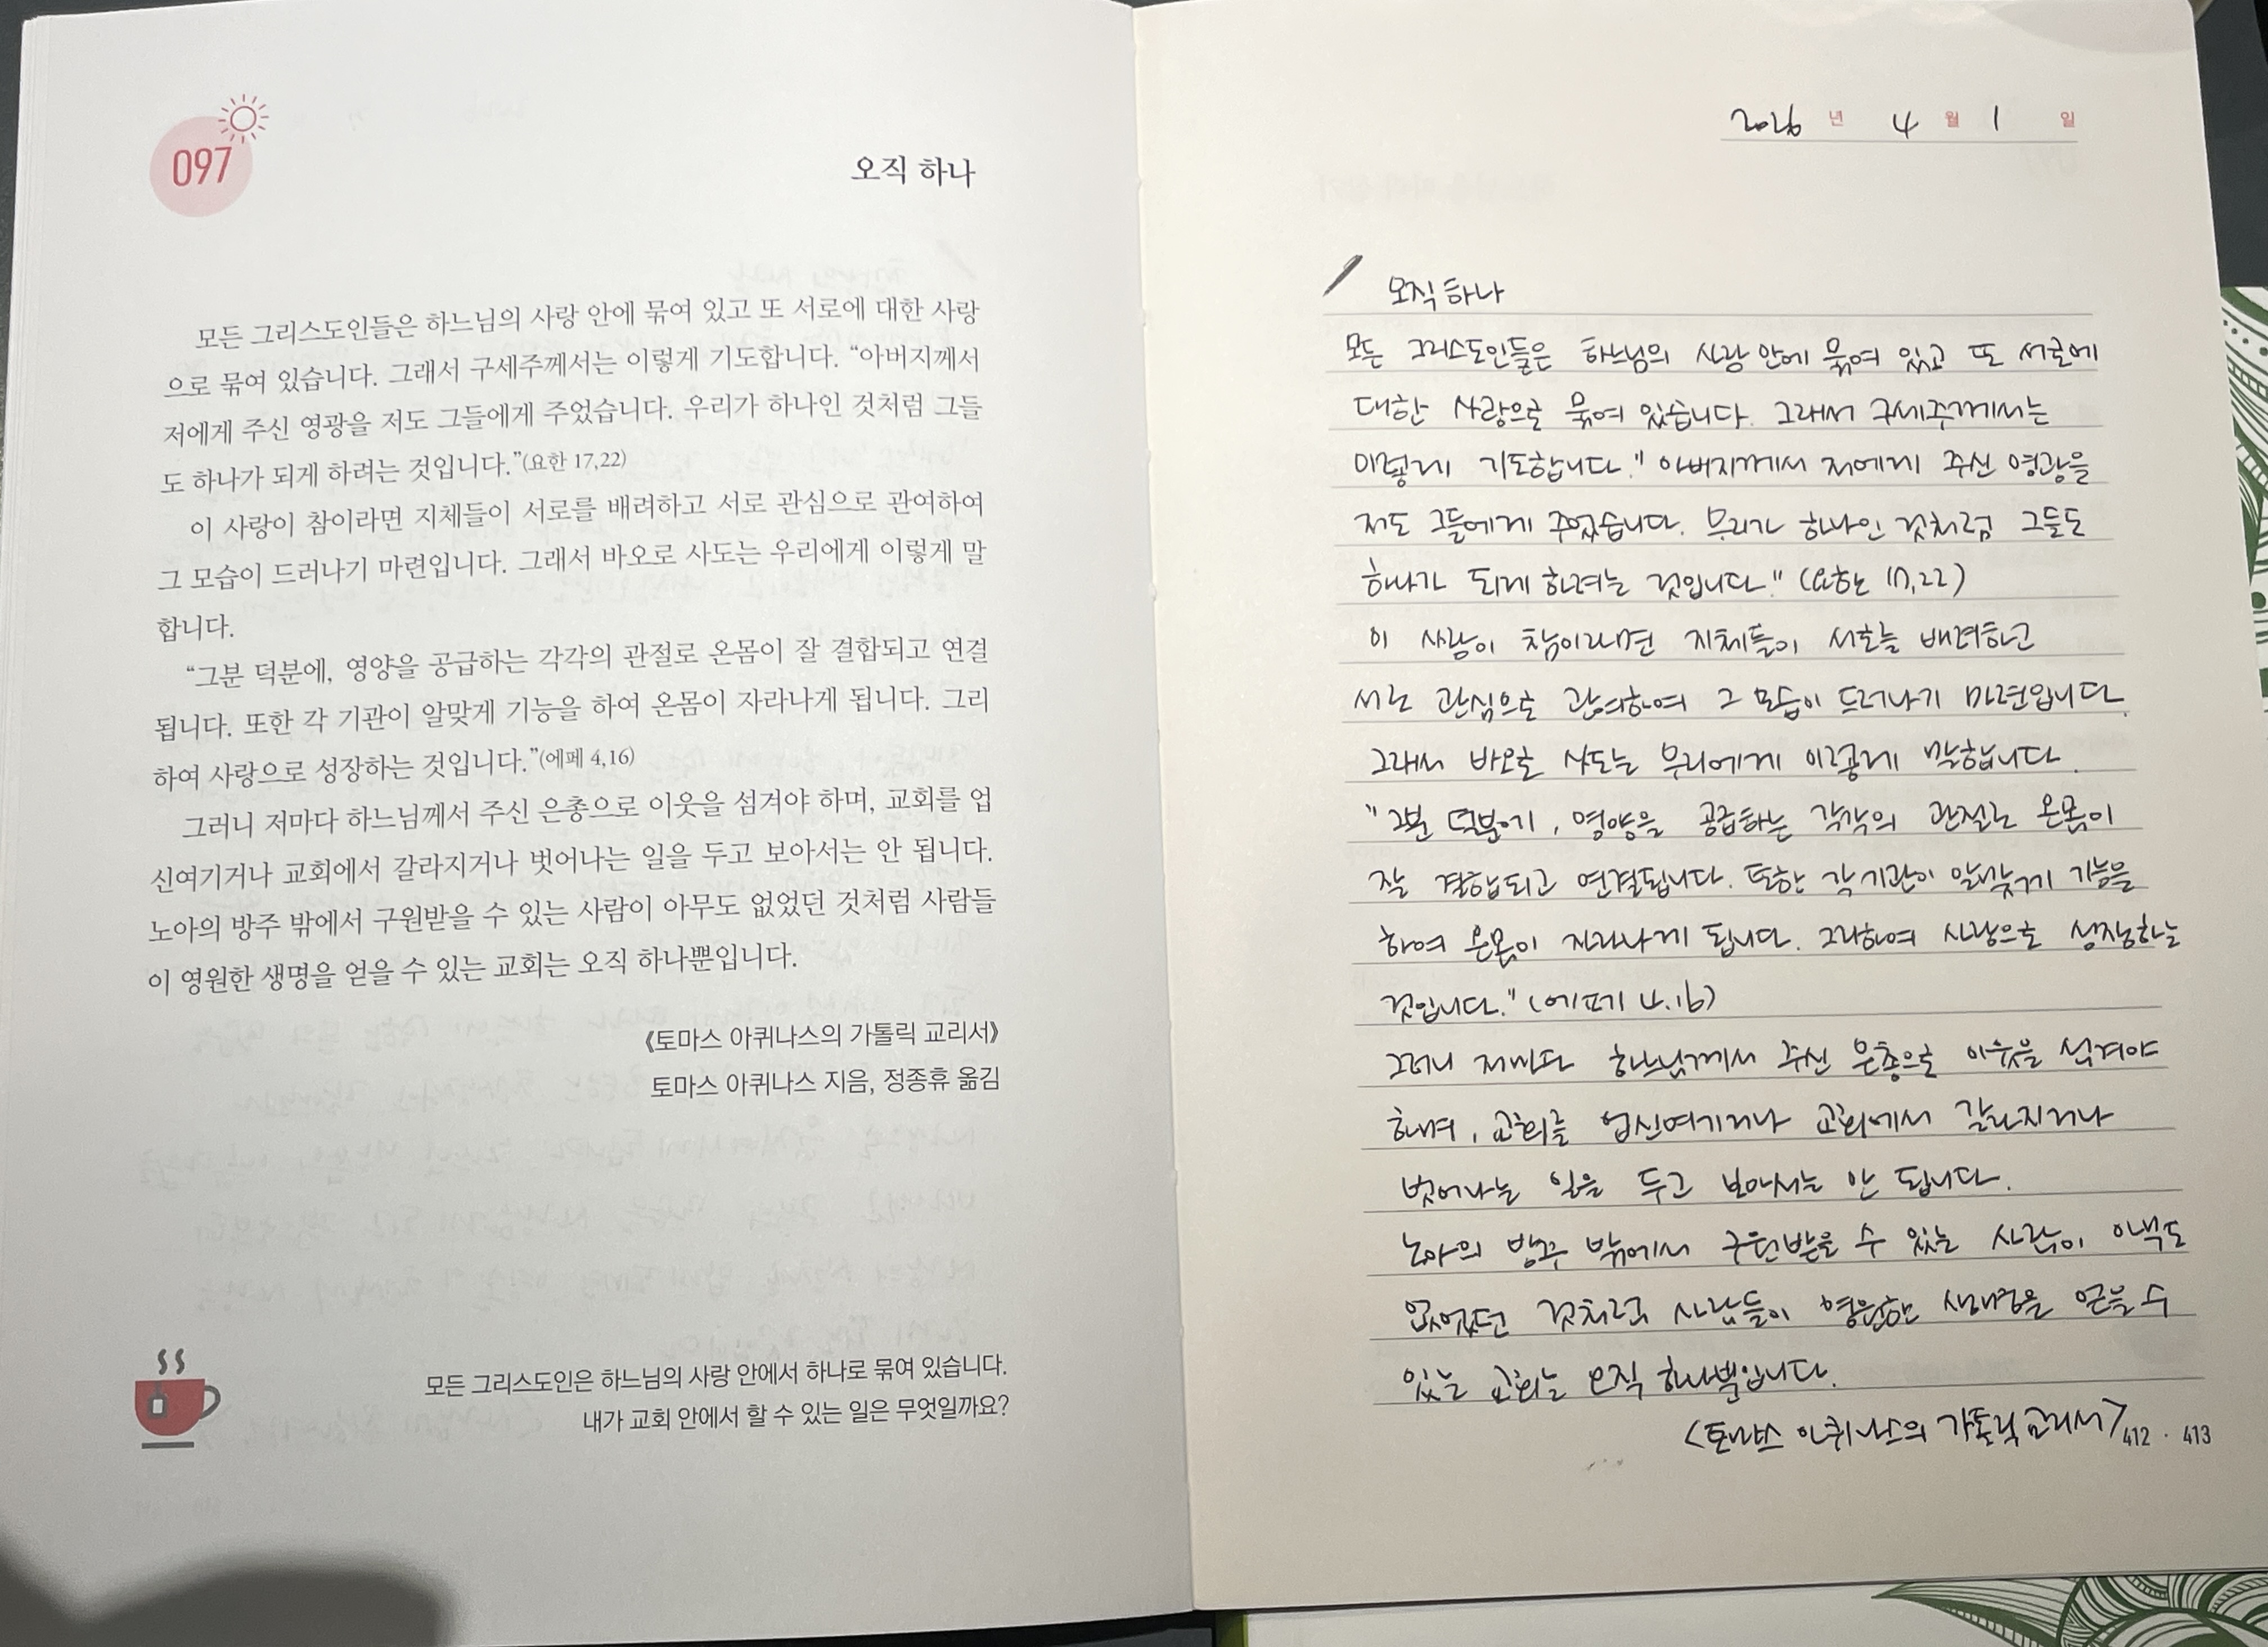 097
오직 하나
모든 그리스도인들은 하느님의 사랑 안에 묶여 있고 또 서로에 대한 사랑
으로 묶여 있습니다. 그래서 구세주께서는 이렇게 기도합니다. “아버지께서
저에게 주신 영광을 저도 그들에게 주었습니다. 우리가 하나인 것처럼 그들
도 하나가 되게 하려는 것입니다.”(요한 17,22)
이 사랑이 참이라면 지체들이 서로를 배려하고 서로 관심으로 관여하여
그 모습이 드러나기 마련입니다. 그래서 바오로 사도는 우리에게 이렇게 말
합니다.
“그분 덕분에, 영양을 공급하는 각각의 관절로 온몸이 잘 결합되고 연결
됩니다. 또한 각 기관이 알맞게 기능을 하여 온몸이 자라나게 됩니다. 그리
하여 사랑으로 성장하는 것입니다.”(에페 4,16)
그러니 저마다 하느님께서 주신 은총으로 이웃을 섬겨야 하며, 교회를 업
신여기거나 교회에서 갈라지거나 벗어나는 일을 두고 보아서는 안 됩니다.
노아의 방주 밖에서 구원받을 수 있는 사람이 아무도 없었던 것처럼 사람들
이 영원한 생명을 얻을 수 있는 교회는 오직 하나뿐입니다.
《토마스 아퀴나스의 가톨릭 교리서》
토마스 아퀴나스 지음, 정종휴 옮김
모든 그리스도인은 하느님의 사랑 안에서 하나로 묶여 있습니다.
내가 교회 안에서 할 수 있는 일은 무엇일까요?
2026 년 4 월 1 일
오직 하나
모든 그리스도인들은 하느님의 사랑 안에 묶여 있고 또 서로에
대한 사랑으로 묶여 있습니다. 그래서 구세주께서는
이렇게 기도합니다. "아버지께서 저에게 주신 영광을
저도 그들에게 주었습니다. 우리가 하나인 것처럼 그들도
하나가 되게 하려는 것입니다." (요한 17,22)
이 사랑이 참이라면 지체들이 서로를 배려하고
서로 관심으로 관여하여 그 모습이 드러나기 마련입니다.
그래서 바오로 사도는 우리에게 이렇게 말합니다.
"그분 덕분에, 영양을 공급하는 각각의 관절로 온몸이
잘 결합되고 연결됩니다. 또한 각 기관이 알맞게 기능을
하여 온몸이 자라나게 됩니다. 그리하여 사랑으로 성장하는
것입니다." (에페 4.16)
그러니 저마다 하느님께서 주신 은총으로 이웃을 섬겨야
하며, 교회를 업신여기거나 교회에서 갈라지거나
벗어나는 일을 두고 보아서는 안 됩니다.
노아의 방주 밖에서 구원받을 수 있는 사람이 아무도
없었던 것처럼 사람들이 영원한 생명을 얻을 수
있는 교회는 오직 하나뿐입니다.
<토마스 아퀴나스의 가톨릭 교리서>
412 · 413